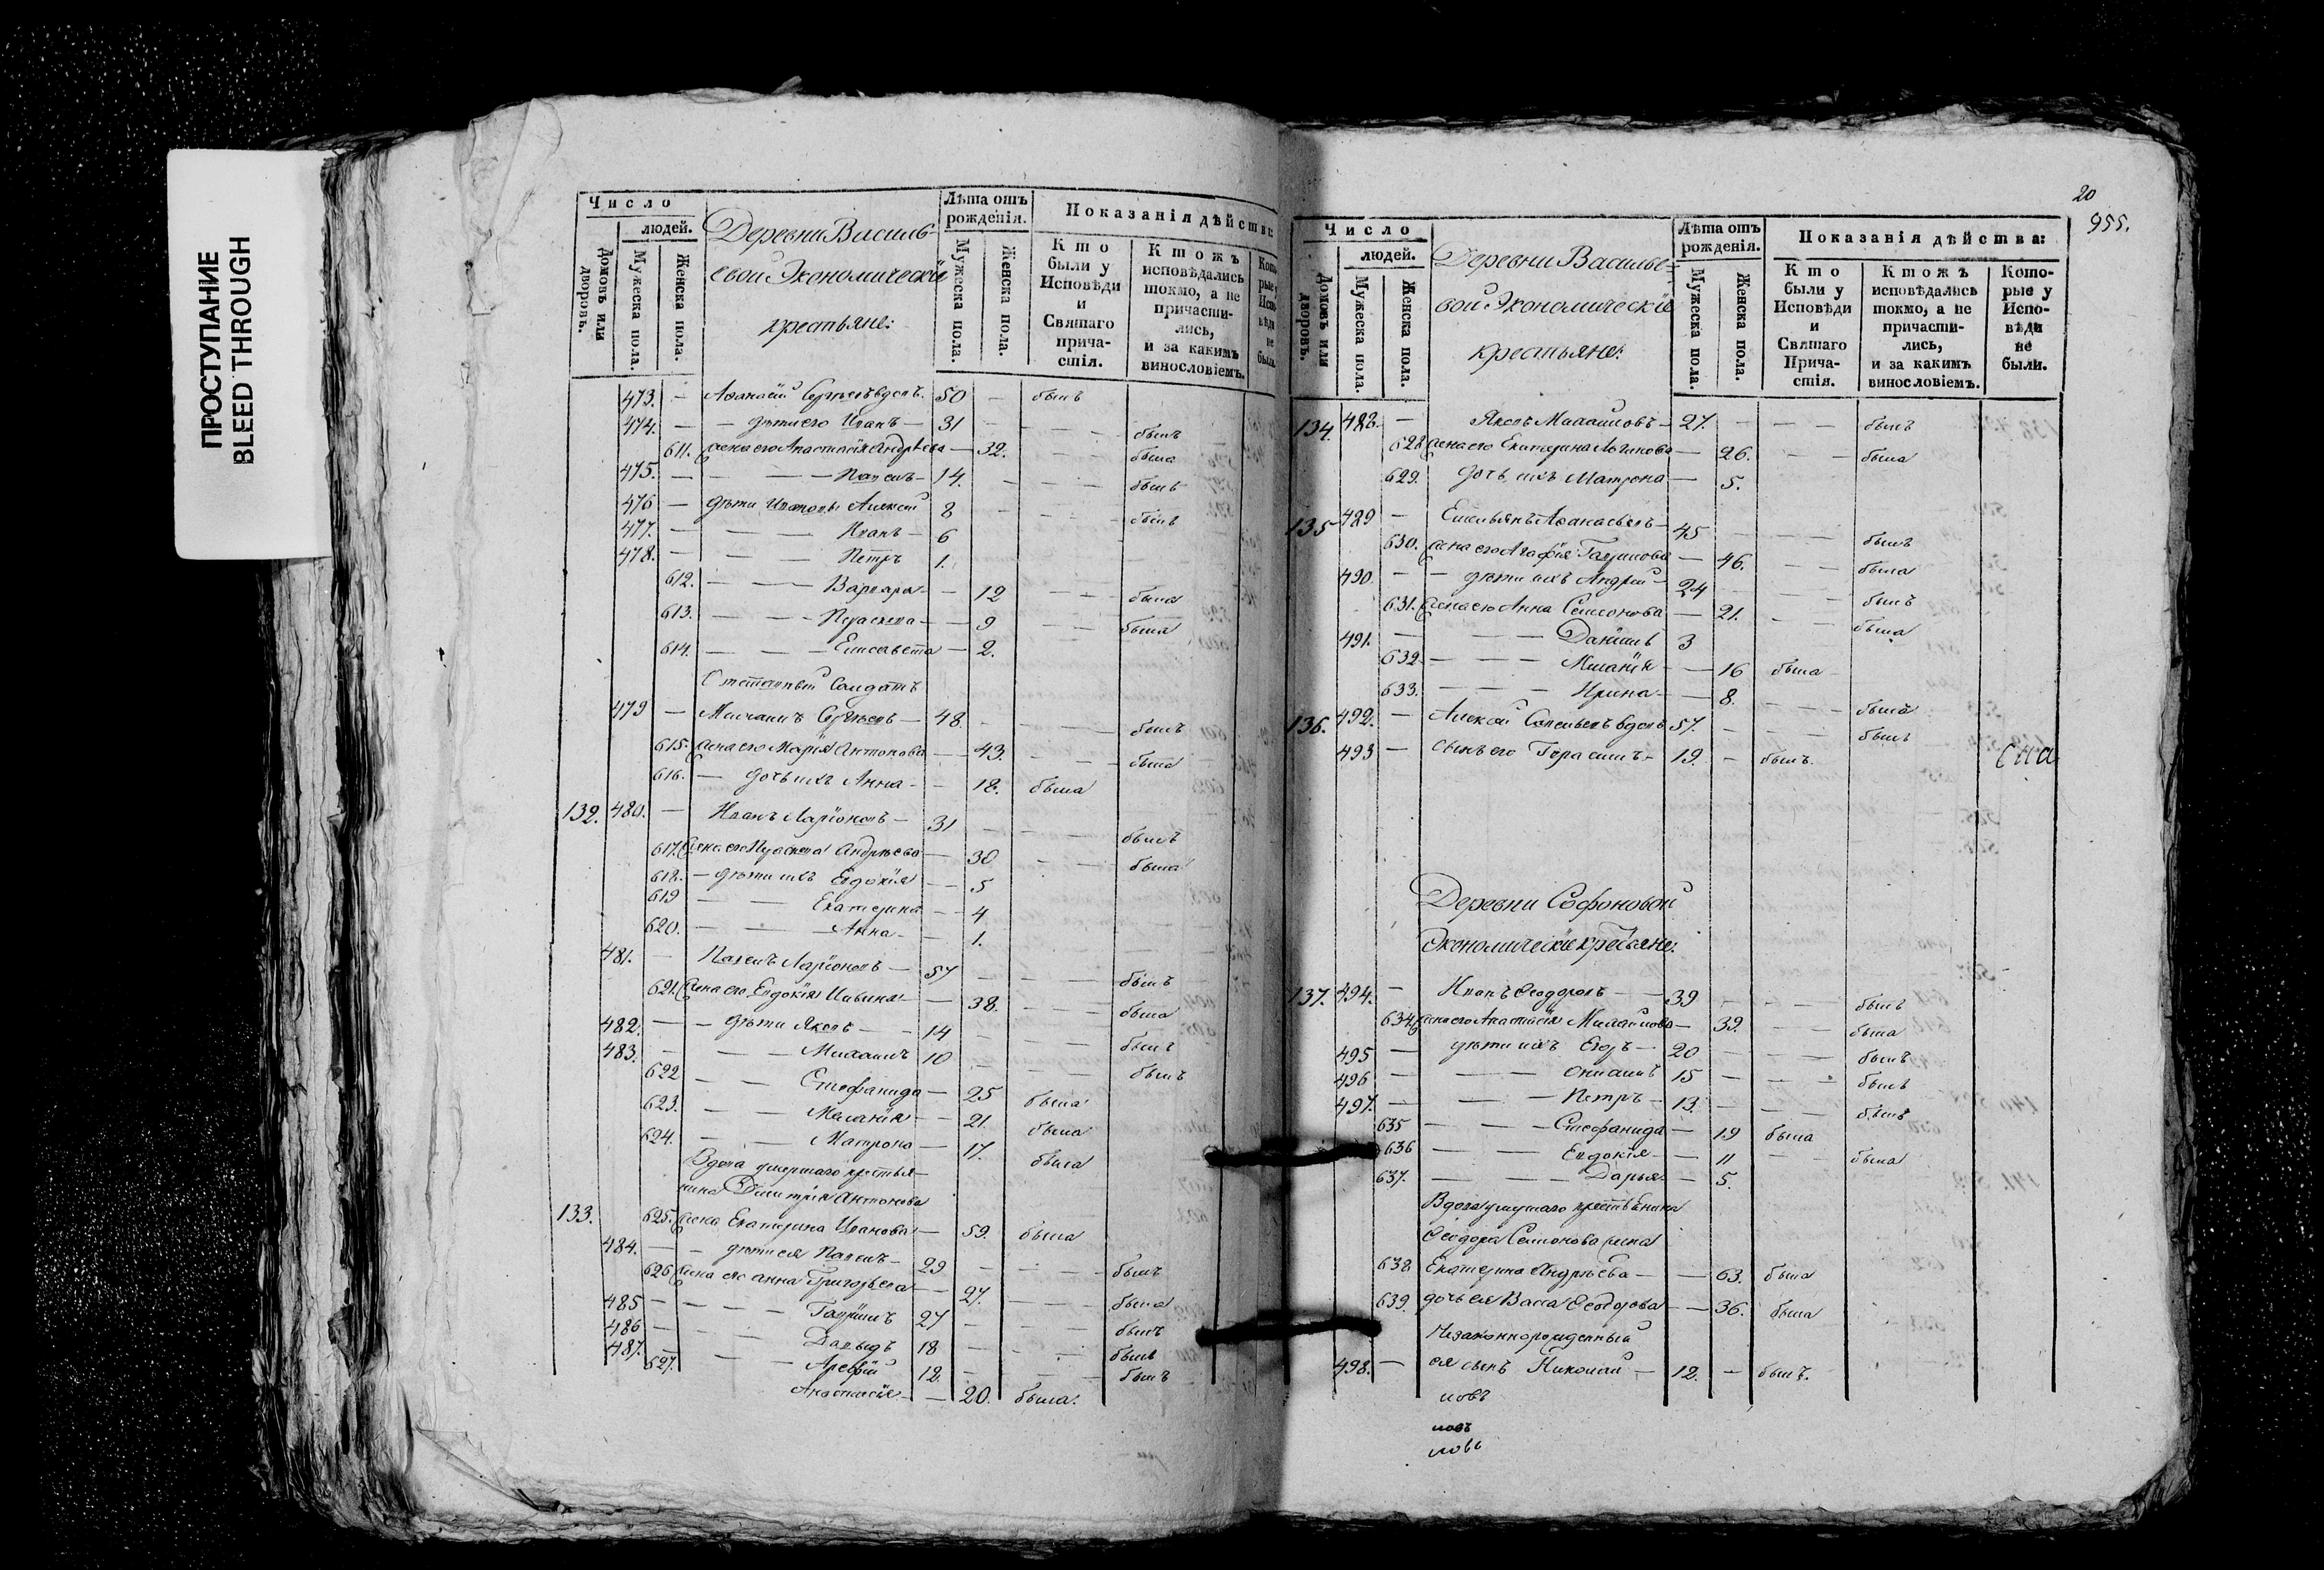 ПРОСТУПАНИЕ
BLEED THROUGH
Число
людей.
Домовъ или дворовъ.
Мужеска пола.
Женска пола.
Деревни Василь-
евой Экономическiе
крестьяне:
Лѣта отъ рожденiя.
Мужеска пола.
Женска пола.
Показанiя дѣйства:
Кто были у Исповѣди и Святаго прича-стiя.
Ктожъ исповѣдались токмо, а не причасти-лись, и за какимъ винословiемъ.
473. — Аѳанасiй Сергѣевъ вдовъ. 50 — былъ
474. — — дѣти его Иванъ — 31 — — — былъ
611. жена его Анастасiя Андрѣева — 32. — — была
475. — — — — Павелъ — 14. — — — былъ
476 — дѣти Ивановы Алексѣй 8 — — — былъ
477. — — — — Иванъ — 6
478. — — — Петръ 1.
612. — — — Варвара — — 12 — — была
613. — — — Прасковa — — 9 — — была
614. — — — Елисавета — 2.
Отставный Солдатъ
479 — Михаилъ Сергѣевъ — 48. — — — былъ
615. жена его Марiя Антонова — — 43. — — — была
616. — дочь ихъ Анна — — 18. была
132. 480. — Иванъ Ларiоновъ — 31 — — — былъ
617. жена его Прасковa Андрѣева — 30 — — была
618. — дѣти ихъ Евдокiя — — 5
619 — — Екатерина — — 4
620. — — — Анна — — 1.
481. — Павелъ Ларiоновъ — 57 — — — былъ
621. жена его Евдокiя — — 38. — — была
482. — — дѣти Яковъ — — 14 — — — былъ
483. — — — Михаилъ 10 — — — былъ
622 — — Стефанида — 25 была
623. — — Маланiя — — 21. была
624. — — Матрона — 17. была
Вдова умершаго крестья-
нина Димитрiя Антонова
133. 625. жена Екатерина Иванова — 59. была
484. — — дѣти ея Павелъ — 29 — — — былъ
626 жена его Анна Григорьева — 27. — — была
485 — — — Гаврiилъ 27 — — — былъ
486 — — — Давыдъ 18 — — — былъ
487. — — — Арефiй 12. — — — былъ
627. Анастасiя — — 20. была.
20
955.
Число
людей.
Домовъ или дворовъ.
Мужеска пола.
Женска пола.
Деревни Василье-
вой Экономическiе
крестьяне:
Лѣта отъ рожденiя.
Мужеска пола.
Женска пола.
Показанiя дѣйства:
Кто были у Исповѣди и Святаго Прича-стiя.
Ктожъ исповѣдались токмо, а не причасти-лись, и за какимъ винословiемъ.
Кото-рые у Испо-вѣди не были.
134. 488. — Яковъ Михайловъ — 27. — — — былъ
628 жена его Екатерина Логинова — 26. — — была
629. дочь ихъ Матрона — 5.
135 489 — Емельянъ Аѳанасьевъ — 45 — — — былъ
630. жена его Агафiя Гаврилова — 46. — — была
490. — — дѣти ихъ Андрей — 24 — — — былъ
631. жена его Анна Семенова — 21. — — была
491. — — — Данiилъ 3
632 — — — Миланiя — — 16 была
633. — — — Ирина — — 8. — — — была
136. 492. — Алексѣй Савельевъ вдовъ 57. — — — былъ
493 — сынъ его Герасимъ — 19. — былъ.
Деревни Софоновой
Экономическiе крестьяне:
137. 494. — Иванъ Ѳеодоровъ — 39 — — — былъ
634. жена его Анастасiя Михайлова — 39. — — была
495 — дѣти ихъ Егоръ — 20 — — — былъ
496 — — — 15 — — — былъ
497. — — — Петръ — 13. — — — былъ
635 — — — Стефанида — 19 была
636 — — — Евдокiя — — 11 — — была
637. — — — Дарья — — 5.
Вдова умершаго крестьянина
Ѳеодора Семенова жена
638 Екатерина Андрѣева — — 63. была
639. дочь ея Васса Ѳеодорова — — 36. была
Незаконнорожденный
498. — ея сынъ Николай — 12. — былъ.